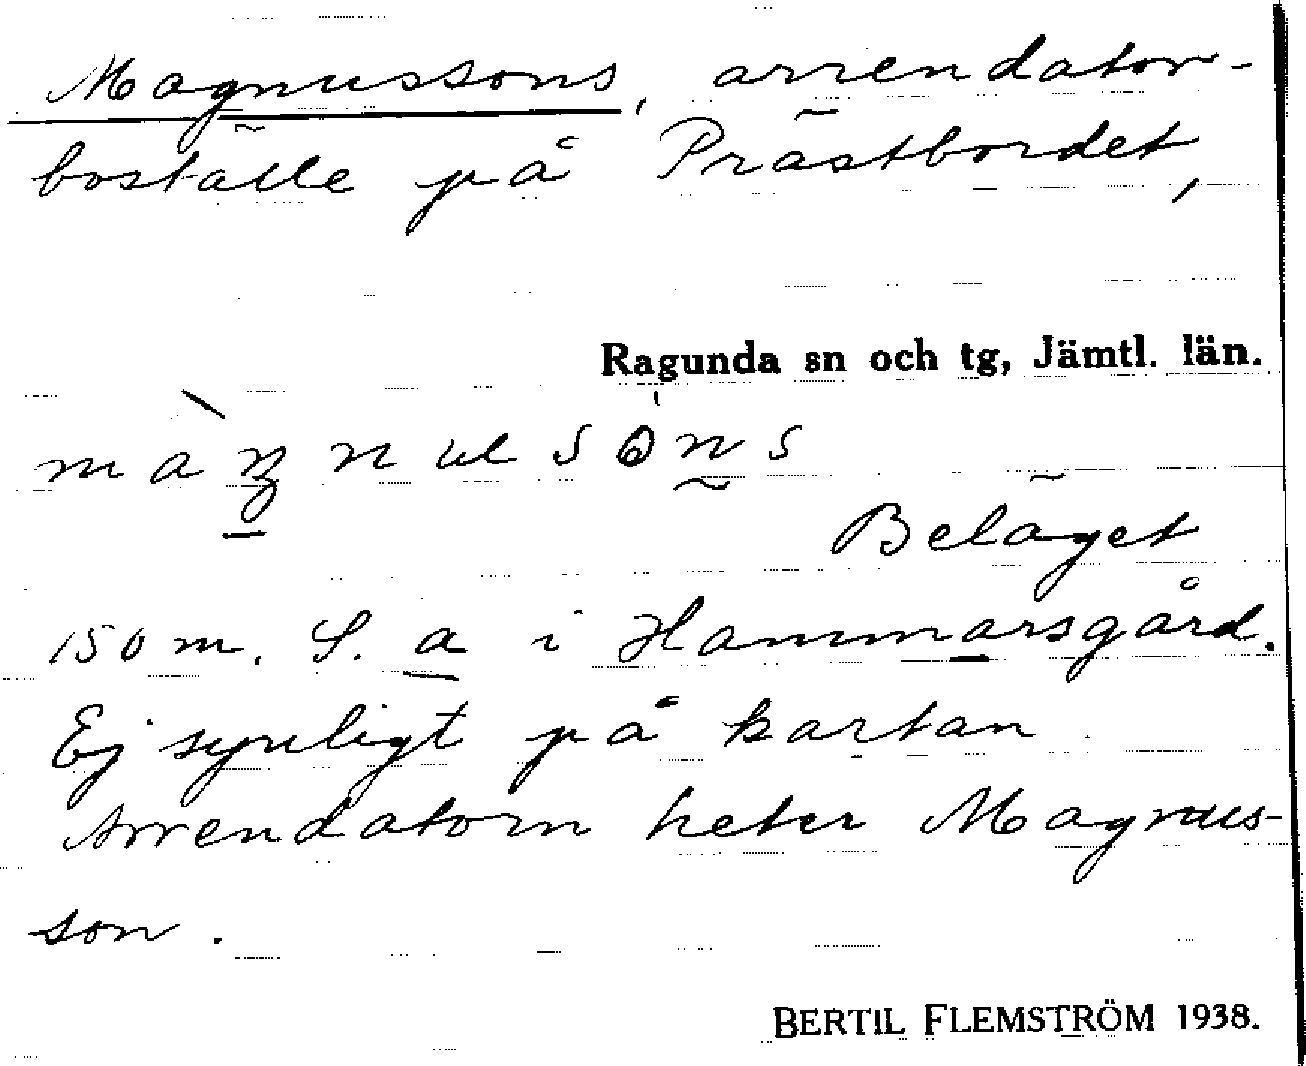 Magnussons, arrendator-
boställe på Prästbordet,
Ragunda sn och tg, Jämtl. län.
Beläget
150 m. S. a i Hammarsgård.
Ej synligt på kartan
Arrendatorn heter Magnus-
son.
BERTIL FLEMSTRÖM 1938.